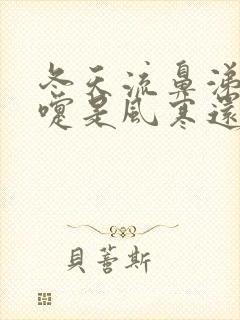 冬天流鼻涕
嚏是風寒還
貝蕾斯